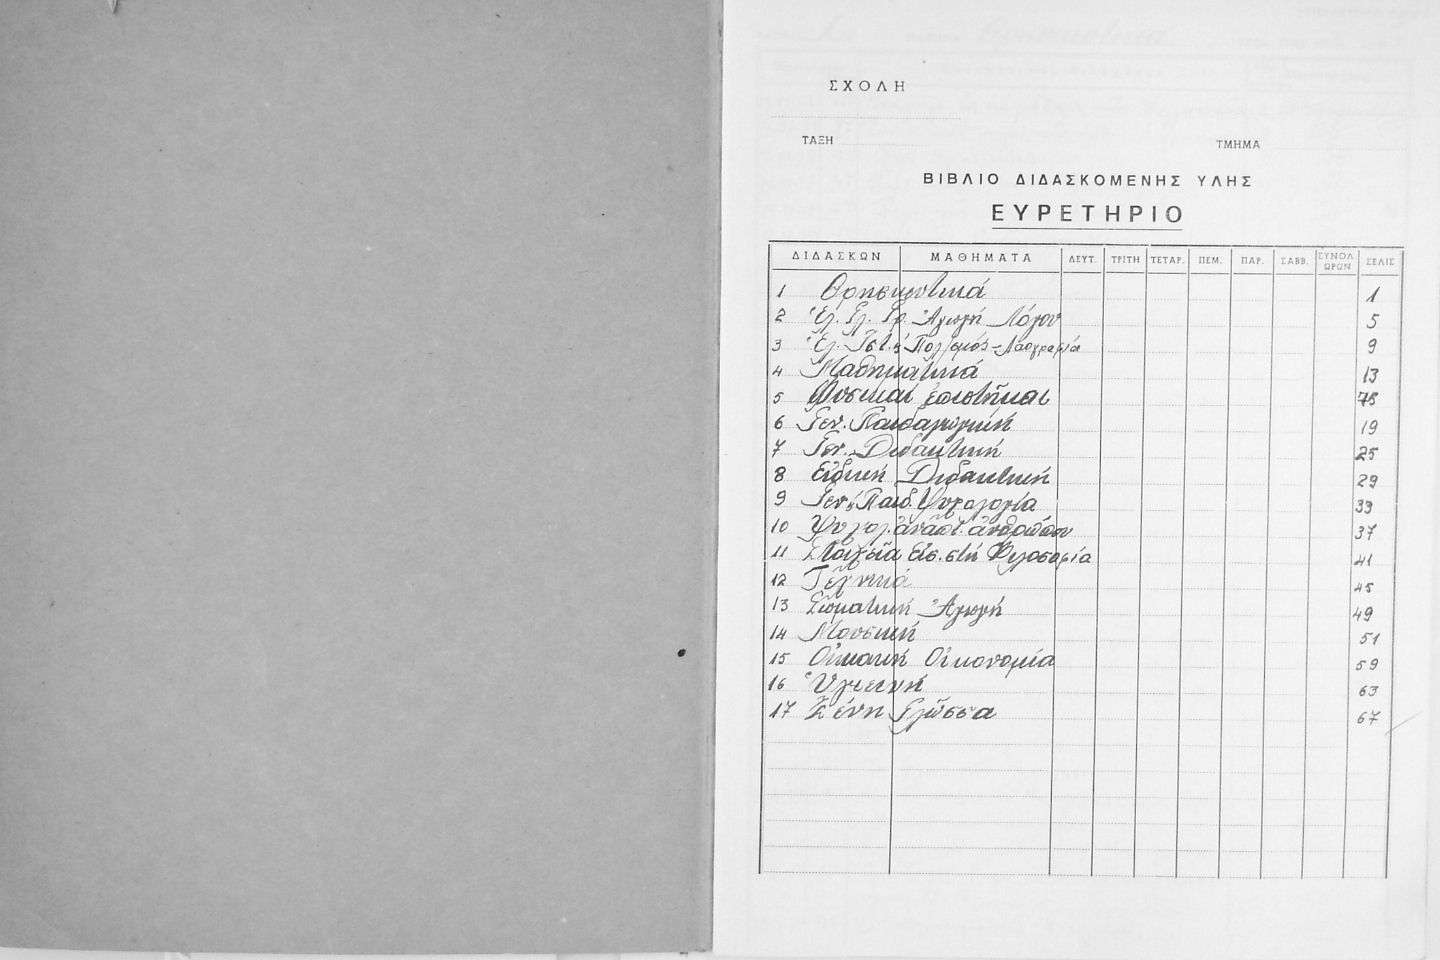 ΣΧΟΛΗ
ΤΑΞΗ ΤΜΗΜΑ
ΒΙΒΛΙΟ ΔΙΔΑΣΚΟΜΕΝΗΣ ΥΛΗΣ
ΕΥΡΕΤΗΡΙΟ
ΔΙΔΑΣΚΩΝ ΜΑΘΗΜΑΤΑ ΔΕΥΤ. ΤΡΙΤΗ ΤΕΤΑΡ. ΠΕΜ. ΠΑΡ. ΣΑΒΒ. ΣΥΝΟΛ. ΩΡΩΝ ΣΕΛΙΣ
1 Θρησκευτικά 1
2 Ἑλ. Γλ. Γρ. Ἀγωγή Λόγου 5
3 Ἑλ. Ἱστ. & Πολ/σμός - Λαογραφία 9
4 Μαθηματικά 13
5 Φυσικαί ἐπιστῆμαι
6 Γεν. Παιδαγωγική 19
7 Γεν. Διδακτική 25
8 Εἰδική Διδακτική 29
9 Γεν. & Παιδ. Ψυχολογία 33
10 Ψυχολ. ἀναπτ. ἀνθρώπου 37
11 Στοιχεῖα Εἰσ. στή Φιλοσοφία 41
12 Τεχνικά 45
13 Σωματική Ἀγωγή 49
14 Μουσική 51
15 Οἰκιακή Οἰκονομία 59
16 Ὑγιεινή 63
17 Ξένη Γλῶσσα 67